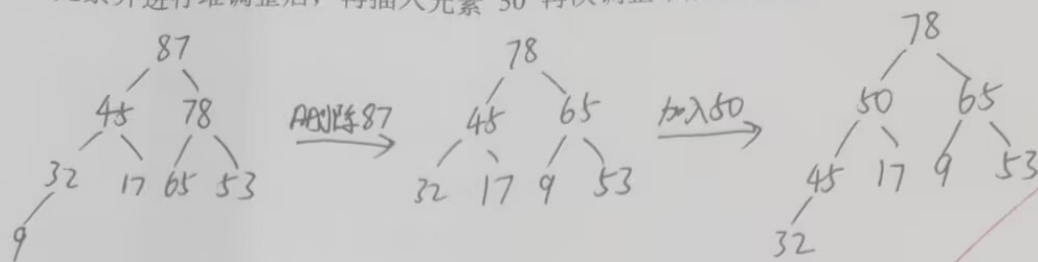 元素并进行堆调整后，再插入元素 50 再次调整
87
45 78
32 17 65 53
9
删除87
78
45 65
32 17 9 53
加入50
78
50 65
45 17 9 53
32